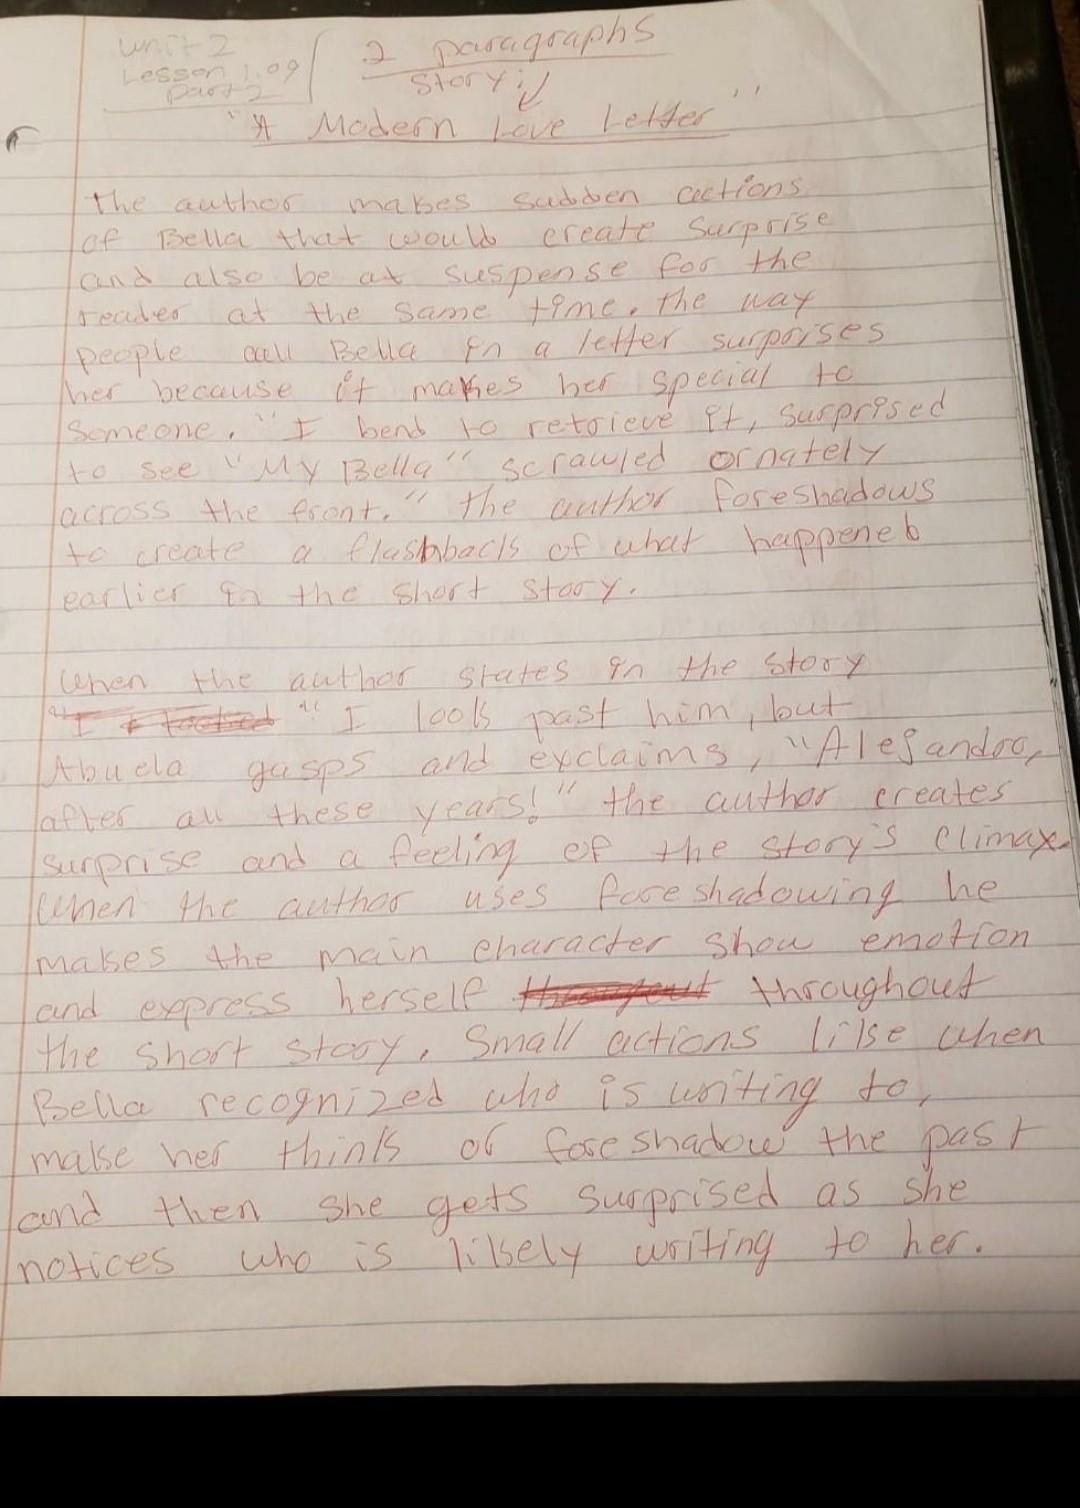 Unit 2
Lesson 1.09
part 2
2 paragraphs
Story:
"A Modern Love Letter"
The author makes sudden actions
of Bella that would create surprise
and also be at suspense for the
reader at the same time. The way
people call Bella in a letter surprises
her because it makes her special to
someone. "I bend to retrieve it, surprised
to see "My Bella" scrawled ornately
across the front." The author foreshadows
to create a flashback of what happened
earlier in the short story.
When the author states in the story
"I looked "I look past him, but
Abuela gasps and exclaims, "Alejandro,
after all these years!" the author creates
surprise and a feeling of the story's climax.
When the author uses foreshadowing he
makes the main character show emotion
and express herself throughout
the short story. Small actions like when
Bella recognized who is writing to,
make her think of foreshadow the past
and then she gets surprised as she
notices who is likely writing to her.